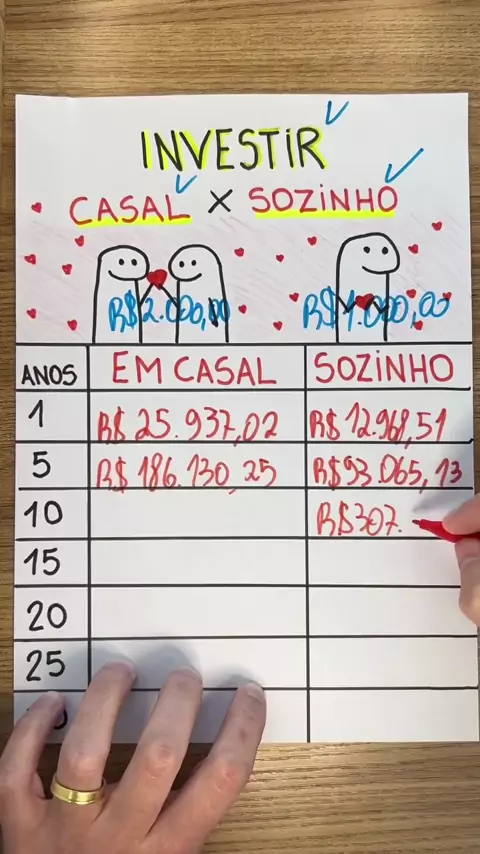 INVESTIR
CASAL X SOZINHO
R$2.000,00 R$1.000,00
ANOS EM CASAL SOZINHO
1 R$ 25.937,02 R$ 12.968,51
5 R$ 186.130,25 R$93.065,13
10 R$307.
15
20
25